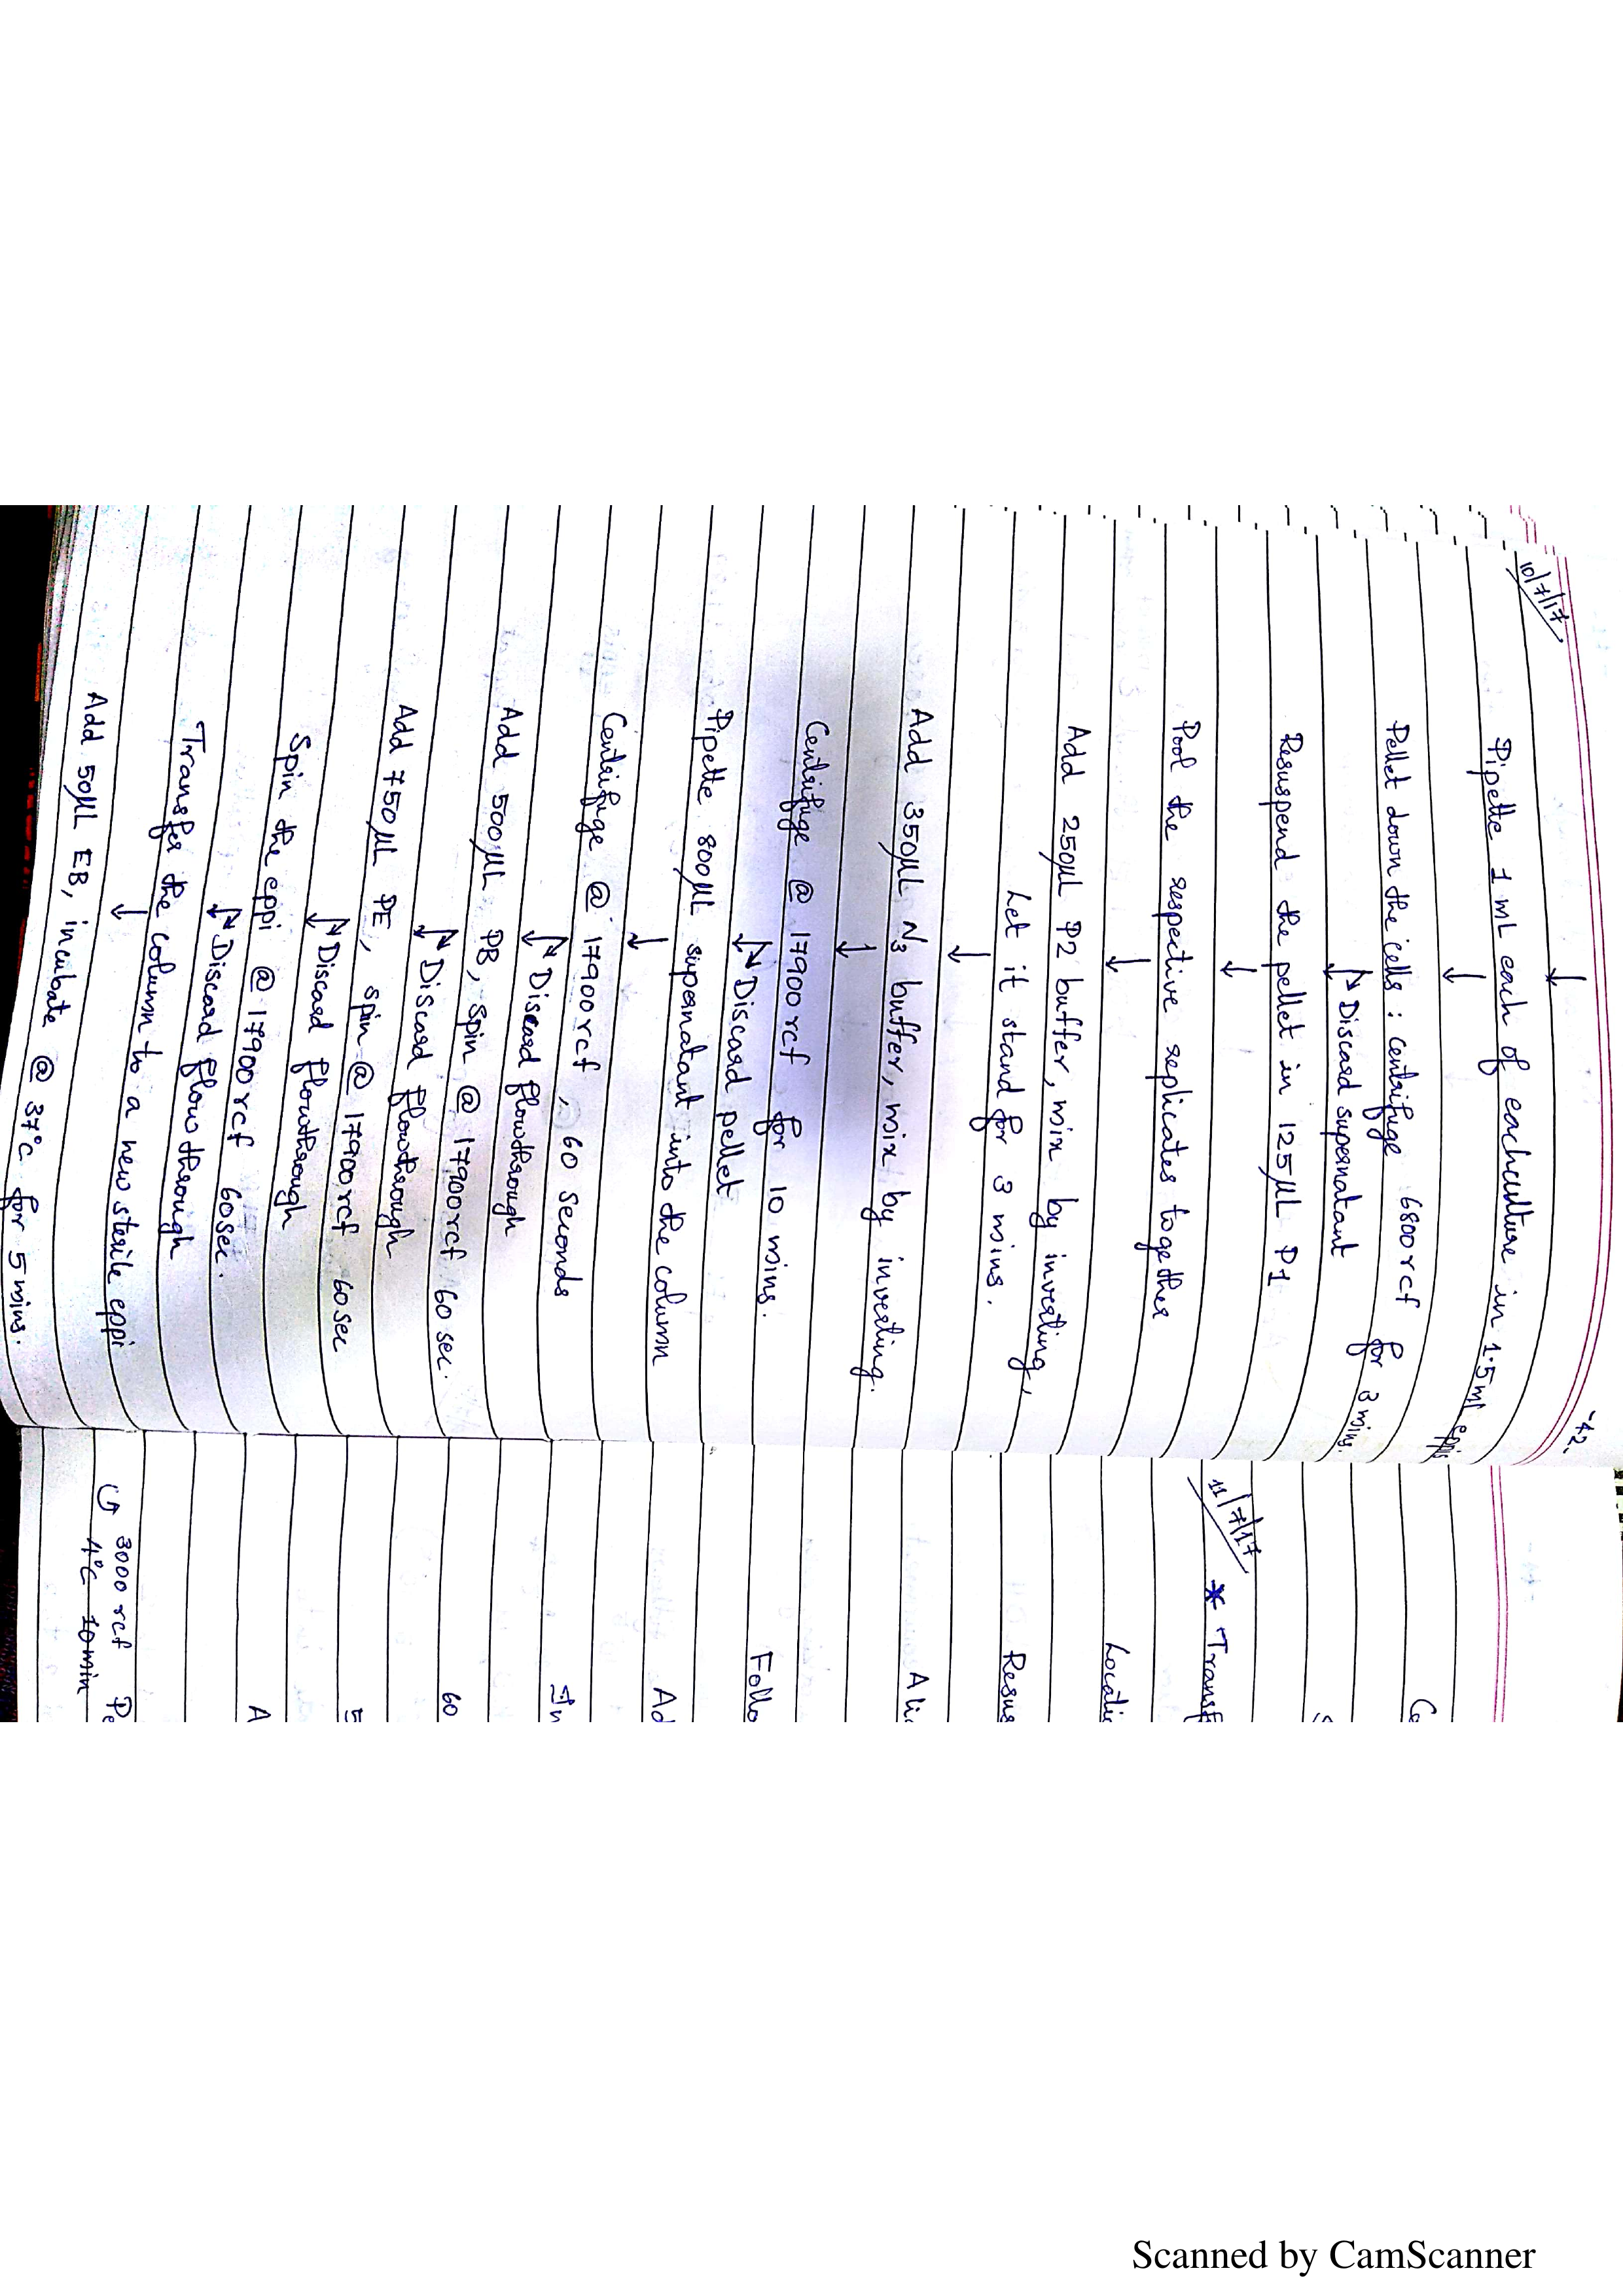 -42-
10/7/17
↓
Pipette 1 mL each of each culture in 1.5ml eppis
↓
Pellet down the cells : centrifuge 6800 rcf for 3 mins.
↓→ Discard supernatant
Resuspend the pellet in 125µL P1
↓
Pool the respective replicates together
↓
Add 250µl P2 buffer, mix by inverting,
Let it stand for 3 mins.
↓
Add 350µL N3 buffer, mix by inverting.
↓
Centrifuge @ 17900 rcf for 10 mins.
↓→ Discard pellet
Pipette 800µl supernatant into the column
↓
Centrifuge @ 17900 rcf, 60 seconds
↓→ Discard flowthrough
Add 500µL PB, spin @ 17900 rcf 60 sec.
↓→ Discard flowthrough
Add 750µL PE, spin @ 17900 rcf 60 sec
↓→ Discard flowthrough
Spin the eppi @ 17900 rcf 60 sec.
↓→ Discard flowthrough
Transfer the column to a new sterile eppi
↓
Add 50µl EB, incubate @ 37°C for 5 mins.
Ce
11/7/17 * Transf
Locati
Resus
Ali
Follo
Ad
In
60
5
A
↳ 3000 rcf Pe
4°C 10 min
Scanned by CamScanner